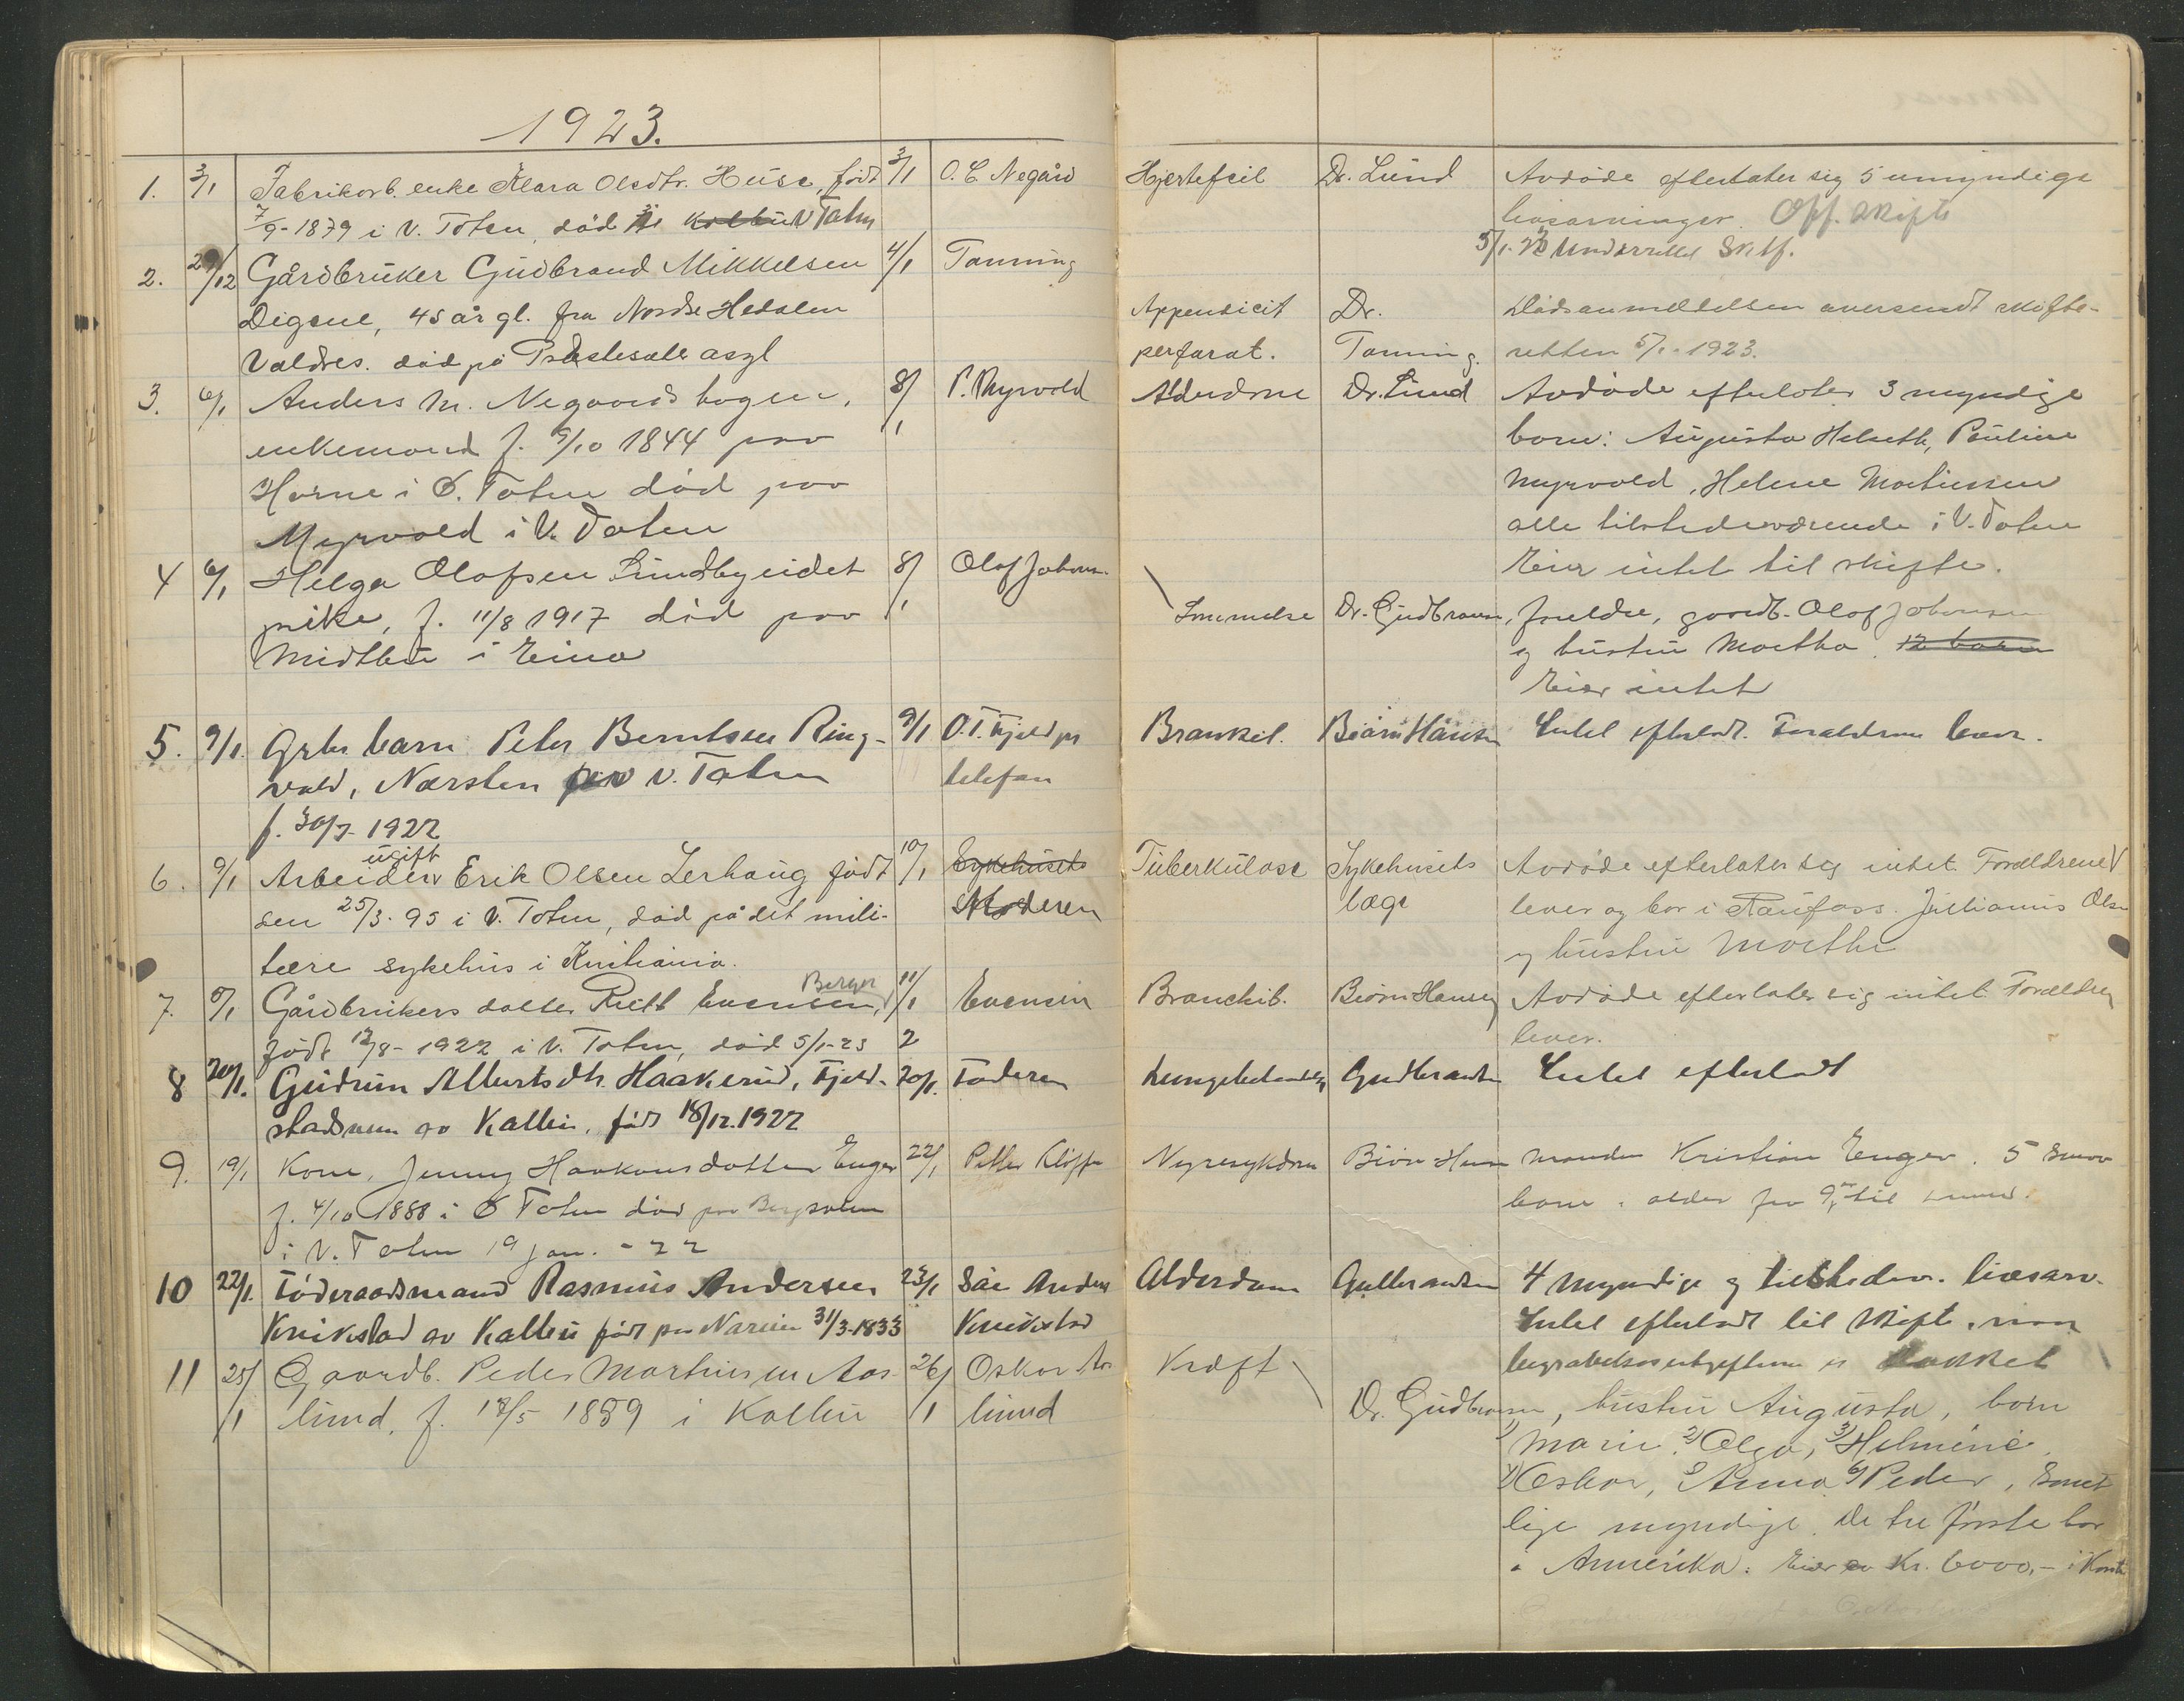 1923.
1. 3/1 Fabrikarb. enke Klara Olsdtr. Huse, født 3/1 O. C. Negård Hjertefeil Dr. Lund Avdøde efterlater sig 5 umyndige
7/9-1879 i V. Toten, død i V Toten livsarvinger. Off. skifte
5/1-23 Underrettet Skif.
2. 29/12 Gårdbruker Gudbrand Mikkelsen 4/1 Tanning
Digene, 45 år gl. fra Nordre Hedalen Appendicit Dr. Dødsanmeldelsen oversendt skifte-
Valdres. død på Prestesæter asyl perforat. Tanning. retten 5/1-1923.
3. 6/1 Anders M. Negaardshagen, 8/1 P. Myrvold Alderdom Dr. Lund Avdøde efterlater 3 myndige
enkemand f. 9/10 1844 paa born: Augusta Helseth, Pauline
Horne i Ø. Toten død paa Myrvold, Helene Martinsen
Myrvold i V. Toten alle tilstedeværende i V. Toten
Eier intet til skifte.
4 6/1 Helga Olafsen Sundbyeidet 8/1 Olaf Johans.
pike, f. 11/8 1917 død paa Dr. Gudbrans, foreldre, gaardb. Olaf Johansen
Midtbu i Eina og hustru Martha. 12 barn
Eier intet
5. 9/1. Grbr. barn Peter Berntsen Ring- 9/1 O. T. Fjeld pr Bronkit. Biørn Hansen Intet efterlatt. Forældrene lever.
vold, Nærsten V. Toten telefon
f. 30/7-1922
ugift
6. 9/1 Arbeider Erik Olsen Lerhaug født 10/1 Sykehusets Tuberkulose Sykehusets Avdøde efterlater sig intet. Forældrene
den 25/3-95 i V. Toten, død på det mili- Moderen læge lever og bor i Raufoss. Julianus Olsen
tære sykehus i Kristiania. og hustru Marthe
Berger
7. 5/1 Gårdbrukers datter Rutt Evensen, 11/1 Evensen Bronchit. Biørn Hansen Avdøde efterlater sig intet Forældre
født 12/8-1922 i V. Toten, død 5/1-23 2 lever.
8 20/1. Gudrun Alberts dtr. Haakerud, Fjeld- 20/1. Faderen Lungebetændelse Gudbrandsen Intet efterladt
stadsveen av Kolbu, født 18/12.1922
9. 19/1 Kone, Jenny Haakonsdatter Enger 22/1 Petter Kløppe Nyresykdom Biørn Hansen manden Kristian Enger. 5 smaa
f. 4/10 1888 i Ø Toten død paa Bergsveen barn i alder fra 9 år til
i V. Toten 19 jan. - 22
10 22/1. Føderaadsmand Rasmus Andersen 23/1 Alderdom Gulbrandsen 4 myndige og tilstedev. livsarv.
Kruikstad av Kolbu født paa 31/3-1833 Kruikstad Intet efterladt til skifte, naar
11 25/1 Gaardb. Peder Martinsen Aas- 26/1 Oskar Aas Kræft begravelsesutgifterne er dækket
lund, f. 18/5 1859 i Kolbu lund Dr. Gudbransen, hustru Augusta, børn
1) Marie, 2) Olga, 3) Helmine,
4) Oskar, 5) Anna 6) Peder, samt
lige myndige. De tre første bor
i Amerika. Eier ca Kr. 6000,-